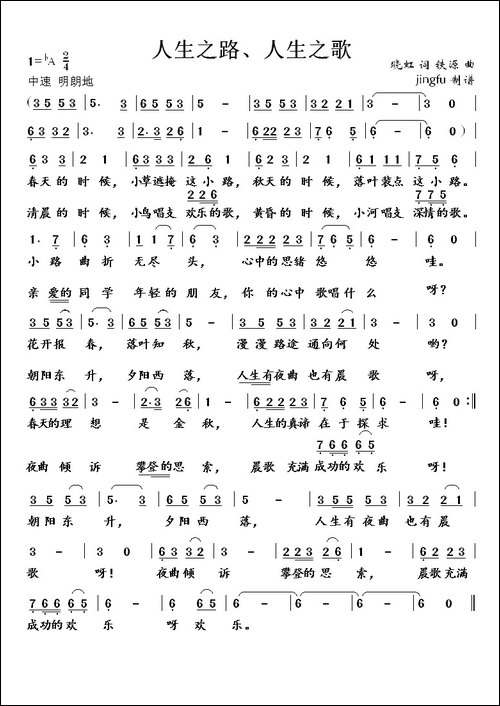 人生之路、人生之歌
1=♭A 2/4
晓虹 词 铁源 曲
中速 明朗地
jingfu 制谱
(3 5 5 3 | 5· 3 | 6 5 5 3 | 5 - | 3 5 5 3 | 2· 1 | 3 - | 3 0 |
1 2 2 3 | 5 - | 6 22 2 3 | 7 6 5 | 6 - | 6 - | 6 0 ) |
6 3 3 | 2 1 | 6 3 3 3 3 | 2 2 6 | 6 3 3 | 2 1 | 6 1 1 1 | 7 7 5 |
春天的时候，小草遮掩这小路，秋天的时候，落叶装点这小路。
2 2 6 2 7 7 5
清晨的时候，小鸟唱支欢乐的歌，黄昏的时候，小河唱支深情的歌。
1· 7 | 6 3 | 1 1 7 | 6 3 | 2 22 2 3 | 7 6 5 | 6 - | 6 0 |
小路曲折无尽头，心中的思绪悠悠哇。
亲爱的同学年轻的朋友，你的心中歌唱什么呀？
3 5 5 3 | 5· 3 | 6 5 5 3 | 5 - | 3 5 5 3 | 2 3 2 1 | 3 - | 3 0 |
花开报春，落叶知秋，漫漫路途通向何处哟？
朝阳东升，夕阳西落，人生有夜曲也有晨歌呀，
6 33 3 2 | 3 - | 2·3 2 6 | 1 - | 6 22 2 3 | 7 6 6 5 | 6 - | 6 0 :||
春天的理想是金秋，人生的真谛在于探求哇！
7 66 6 5
夜曲倾诉攀登的思索，晨歌充满成功的欢乐呀！
3 5 5 3 | 5· 3 | 6 5 5 3 | 5 - | 3 5 5 3 3 | 3 2 2 1 |
朝阳东升，夕阳西落，人生有夜曲也有晨
3 - | 3 0 | 6 3 3 2 | 3 - | 2 23 2 6 | 1 - | 6 3 3 2 |
歌呀！夜曲倾诉攀登的思索，晨歌充满
7 66 6 5 | 6 - | 6 6 5 | 6 - | 6 - | 6 - | 6 0 ||
成功的欢乐呀欢乐。